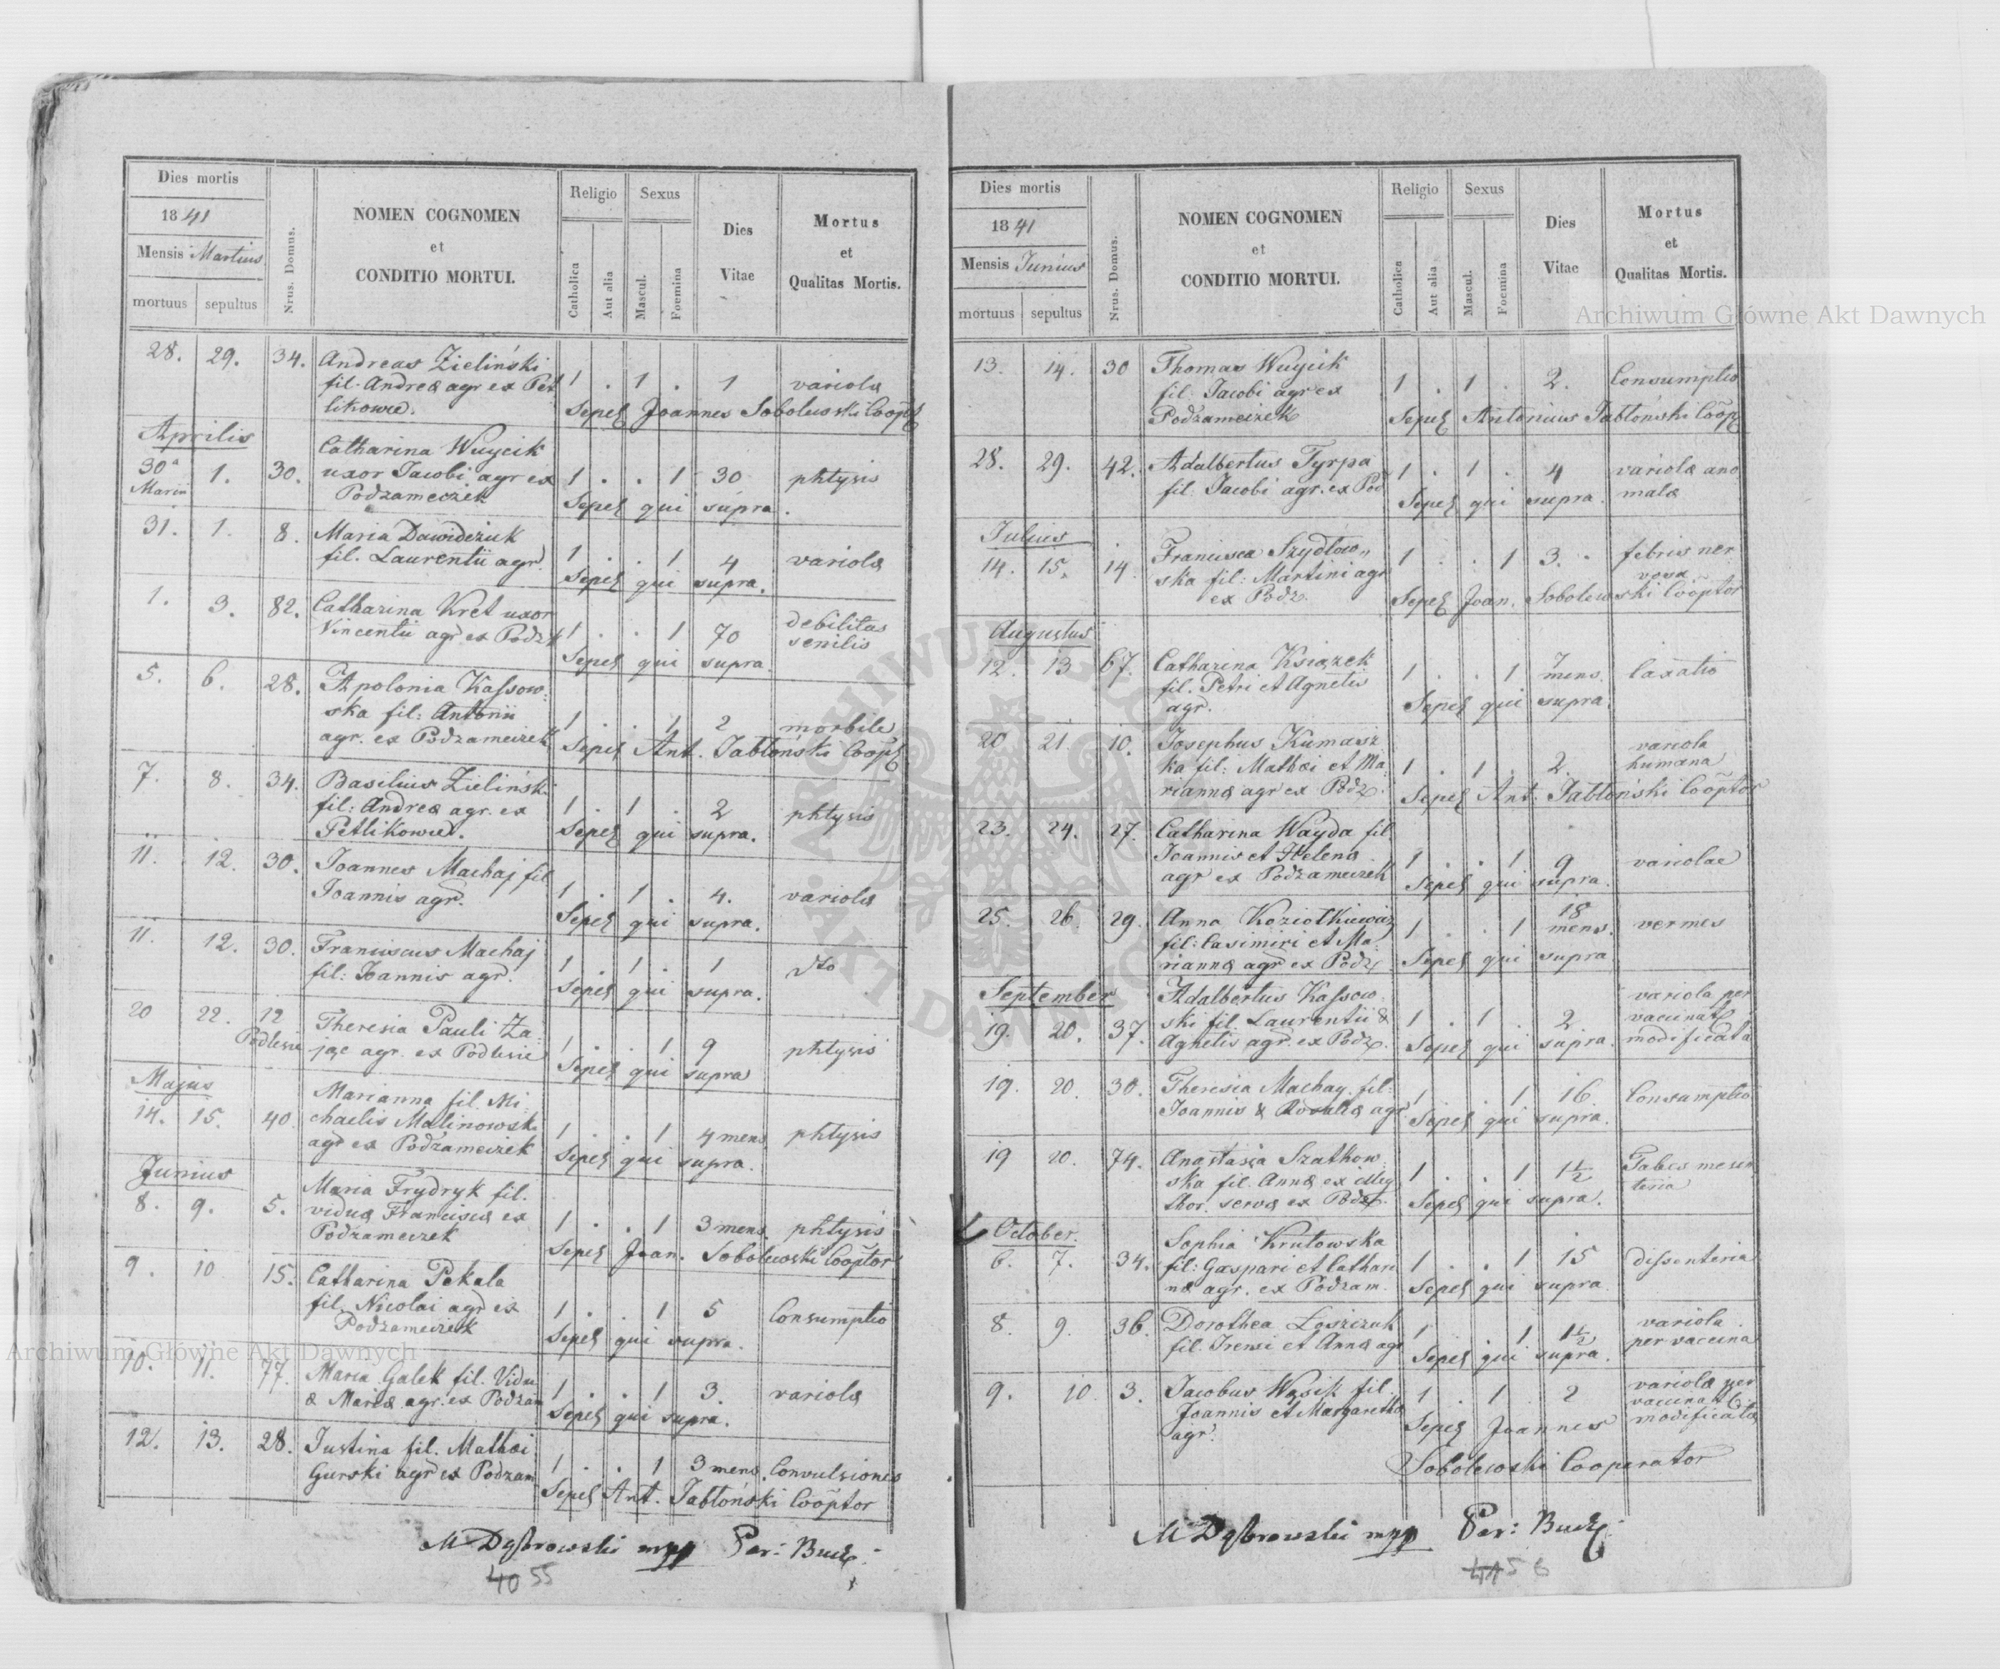 Dies mortis
1841
Mensis Martius
mortuus sepultus
Nrus. Domus.
NOMEN COGNOMEN
et
CONDITIO MORTUI.
Religio
Catholica
Aut alia
Sexus
Mascul.
Foemina
Dies
Vitae
Mortus
et
Qualitas Mortis.
28. 29. 34. Andreas Zieliński
fil. Andreæ agr. ex Pet
likowce. 1 . 1 . 1 variola
Sepel Joannes Sobolewski Coop
Aprilis
30a Martii 1. 30. Catharina Wuycik
uxor Jacobi agr ex
Podzameczek 1 . . 1 30 phtysis
Sepel qui supra.
31. 1. 8. Maria Dawidczuk
fil. Laurentii agr. 1 . . 1 4 variola
Sepel qui supra.
1. 3. 82. Catharina Kret uxor
Vincentii agr ex Podz 1 . . 1 70 debilitas
senilis
Sepel qui supra.
5. 6. 28. Apolonia Kassow
ska fil: Antonii
agr. ex Podzameczek 1 . . 1 2 morbile
Sepel Ant. Jabłoński Coop
7. 8. 34. Basilius Zieliński
fil: Andreæ agr. ex
Petlikowce. 1 . 1 . 2 phtysis
Sepel qui supra.
11. 12. 30. Joannes Machaj fil
Joannis agr. 1 . 1 . 4. variola
Sepel qui supra.
11. 12. 30. Franciscus Machaj
fil: Joannis agr. 1 . 1 . 1 dto
Sepel qui supra.
20 22. 12
Podlesie Theresia Pauli Za
jąc agr. ex Podlesie 1 . . 1 9 phtysis
Sepel qui supra
Majus
14. 15. 40. Marianna fil. Mi
chaelis Malinowski
agr ex Podzameczek 1 . . 1 4 mens phtysis
Sepel qui supra.
Junius
8. 9. 5. Maria Frydryk fil.
viduæ Franciscæ ex
Podzameczek 1 . . 1 3 mens. phtysis
Sepel Joan. Sobolewski Cooptor
9. 10 15. Catharina Pekala
fil. Nicolai agr ex
Podzameczek 1 . . 1 5 Consumptio
Sepel qui supra.
10. 11. 77. Maria Galek fil. Vidu
æ Mariæ agr. ex Podzam 1 . . 1 3. variola
Sepel qui supra.
12. 13. 28. Justina fil. Mathæi
Gurski agr ex Podzam 1 . . 1 3 mens. Convulsiones
Sepel Ant. Jabłoński Cooptor
M Dąbrowski mpp Par: Bucz.
40 55
Dies mortis
1841
Mensis Junius
mortuus sepultus
Nrus. Domus.
NOMEN COGNOMEN
et
CONDITIO MORTUI.
Religio
Catholica
Aut alia
Sexus
Mascul.
Foemina
Dies
Vitae
Mortus
et
Qualitas Mortis.
13. 14. 30 Thomas Wuycik
fil. Jacobi agr ex
Podzameczek 1 . 1 . 2. Consumptio
Sepel Antonius Jabłoński Coop
28. 29. 42. Adalbertus Tyrpa
fil: Jacobi agr. ex Pod 1 . 1 . 4 variola ano
mala
Sepel qui supra.
Julius
14. 15. 14. Francisca Szydłow„
ska fil: Martini agr
ex Podz. 1 . . 1 3. febris ner
vosa
Sepel Joan. Sobolewski Cooptor
Augustus
12. 13 67. Catharina Książek
fil. Petri et Agnetis
agr. 1 . . 1 7 mens. laxatio
Sepel qui supra.
20 21. 10. Josephus Kumasz
ka fil: Mathæi et Ma
riannæ agr ex Podz. 1 . 1 . 2. variola
humana
Sepel Ant. Jabłoński Cooptor
23. 24. 27. Catharina Wayda fil
Joannis et Helenæ
agr ex Podzameczek 1 . . 1 9 variolae
Sepel qui supra.
25. 26. 29. Anna Koziołkiewicz
fil: Casimiri et Ma
riannæ agr ex Podz 1 . . 1 18 mens. vermes
Sepel qui supra
September
19. 20. 37. Adalbertus Kassow
ski fil. Laurentii &
Agnetis agr. ex Podz. 1 . 1 . 2 variola per
vaccinat
modificata
Sepel qui supra.
19. 20. 30. Theresia Machay fil.
Joannis & Rosaliæ agr 1 . . 1 16 Consumptio
Sepel qui supra.
19 20. 74. Anastasia Szatkow
ska fil. Annæ ex illeg
thor. servæ ex Podz. 1 . . 1 1½ Tabes mesen
teria
Sepel qui supra.
October.
6. 7. 34. Sophia Krutowska
fil: Gaspari et Cathari
næ agr. ex Podzam. 1 . . 1 15 dissenteria
Sepel qui supra
8. 9. 36. Dorothea
fil. Irensi et Annæ agr 1 . . 1 1½ variola
per vaccina
Sepel qui supra.
9. 10 3. Jacobus Wąsik fil.
Joannis et Margarethæ
agr. 1 . 1 2 variola per
vaccinat
modificata
Sepel Joannes
Sobolewski Cooperator
M Dąbrowski mpp Par: Bucz.
41 56
Archiwum Główne Akt Dawnych
Archiwum Główne Akt Dawnych
ARCHIWUM GŁÓWNE AKT DAWNYCH